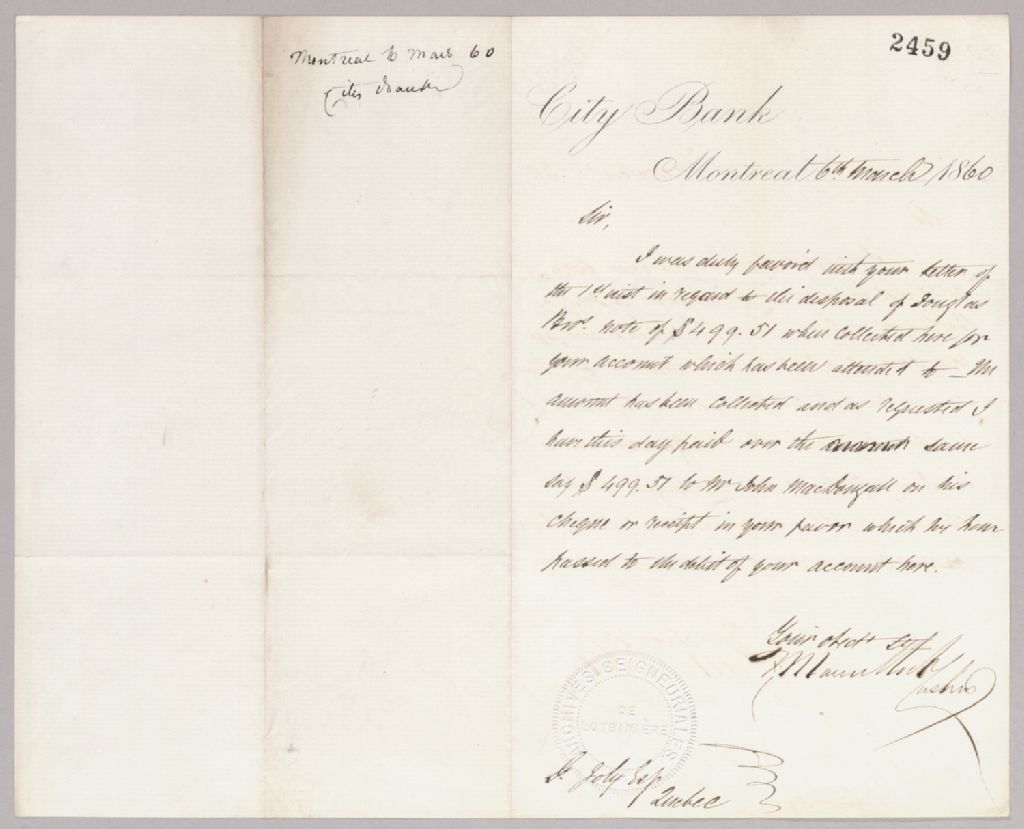 2459
Montreal 6 Mars 60
City Bank
City Bank
Montreal 6th March 1860
Sir,
I was duly favor'd with your letter of
the 1st inst in regard to the disposal of Douglas
Bros. note of $499.51 when collected here for
your account which has been attended to – The
amount has been collected and as requested I
have this day paid over the same
say $499.51 to Mr John MacDougall on his
cheque or receipt in your favor which we have
passed to the debit of your account here.
Your obedt Sert
Cashr
ARCHIVES SEIGNEURIALES
DE
LOTBINIÈRE
Joly Esq
Quebec